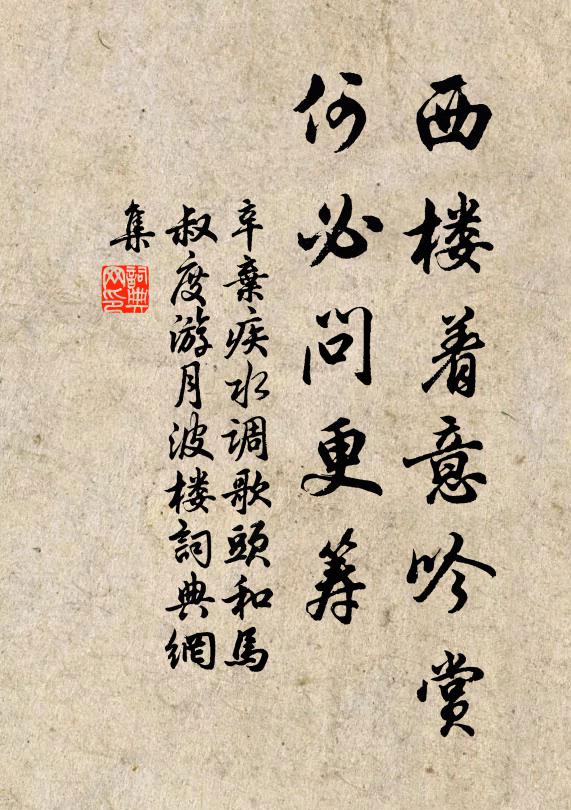 西楼着意吟赏
何必问更筹
辛棄疾水调歌頭和馬
叔度游月波楼詞典網
集
詞典
网印